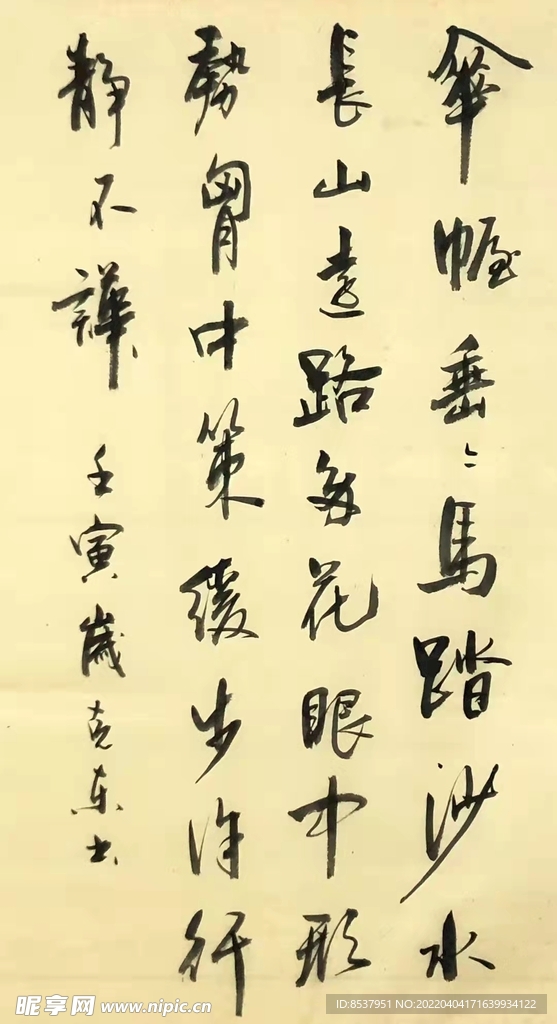 傘幄垂〻馬踏沙水
長山遠路多花眼中形
勢胷中策緩步徐行
靜不譁 壬寅歲克東书
昵享网 www.nipic.cn
ID:8537951 NO:20220404171639934122